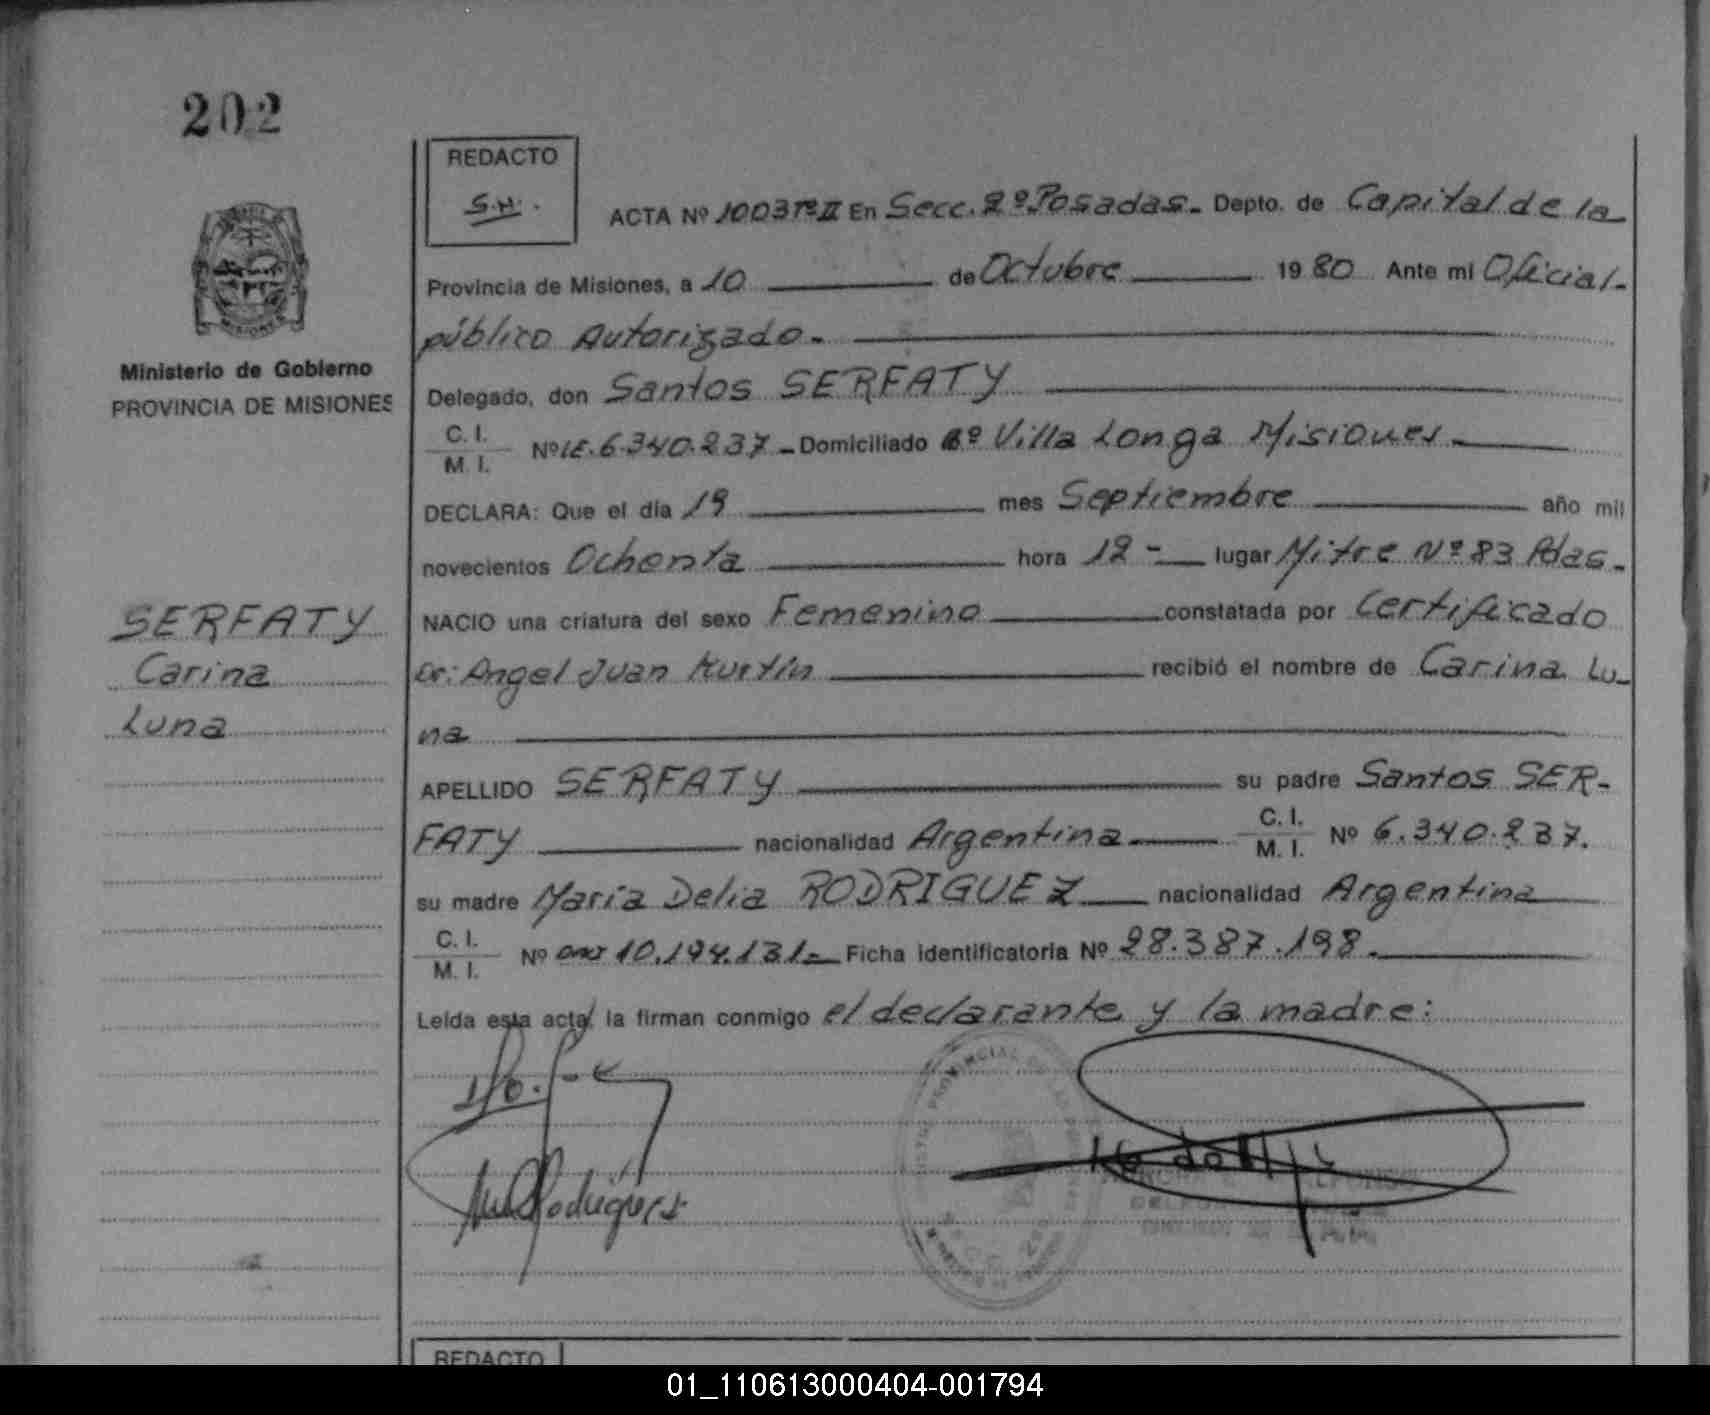 202
REDACTO
S.H.
ACTA Nº 1003 Tº II En Secc. 2º Posadas. Depto. de Capital de la
Provincia de Misiones, a 10 de Octubre 1980 Ante mi Oficial
público Autorizado.
Delegado, don Santos SERFATY
C. I.
M. I.
Nº LE. 6.340.237 Domiciliado Bº Villa Longa Misiones
DECLARA: Que el día 19 mes Septiembre año mil
novecientos Ochenta hora 12 lugar Mitre Nº 83 Pdas.
NACIO una criatura del sexo Femenino constatada por Certificado
Dr: Angel Juan recibió el nombre de Carina Lu-
na
APELLIDO SERFATY su padre Santos SER-
FATY nacionalidad Argentina C. I. Nº 6.340.237.
M. I.
su madre María Delia RODRIGUEZ nacionalidad Argentina
C. I.
M. I.
Nº 10.194.131 Ficha identificatoria Nº 28.387.198.
Leída esta acta, la firman conmigo el declarante y la madre:
Ministerio de Gobierno
PROVINCIA DE MISIONES
SERFATY
Carina
Luna
REDACTO
01_110613000404-001794